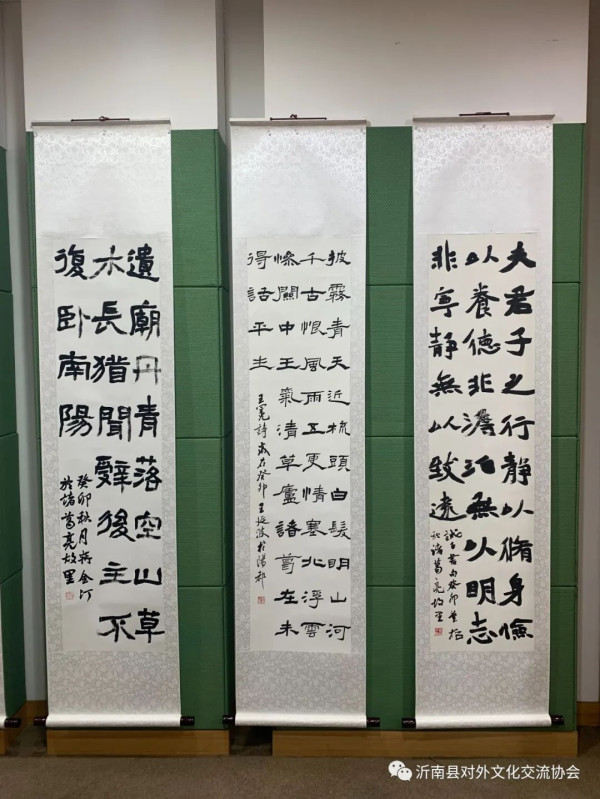 夫君子之行静以脩身儉
以養德非澹泊無以明志
非寧静無以致遠
誡子書句癸卯
於諸葛亮故里
披霧青天近梳頭白髮明山河
千古恨風雨五更情塞北浮雲
慘關中王氣清草廬諸葛在未
得話平生
王冕詩歲在癸卯
遺廟丹青落空山草
木長猶聞辭後主不
復卧南陽
癸卯秋月
於諸葛亮故里
沂南县对外文化交流协会